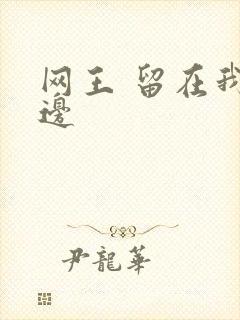 网王 留在我
邊
尹龍華